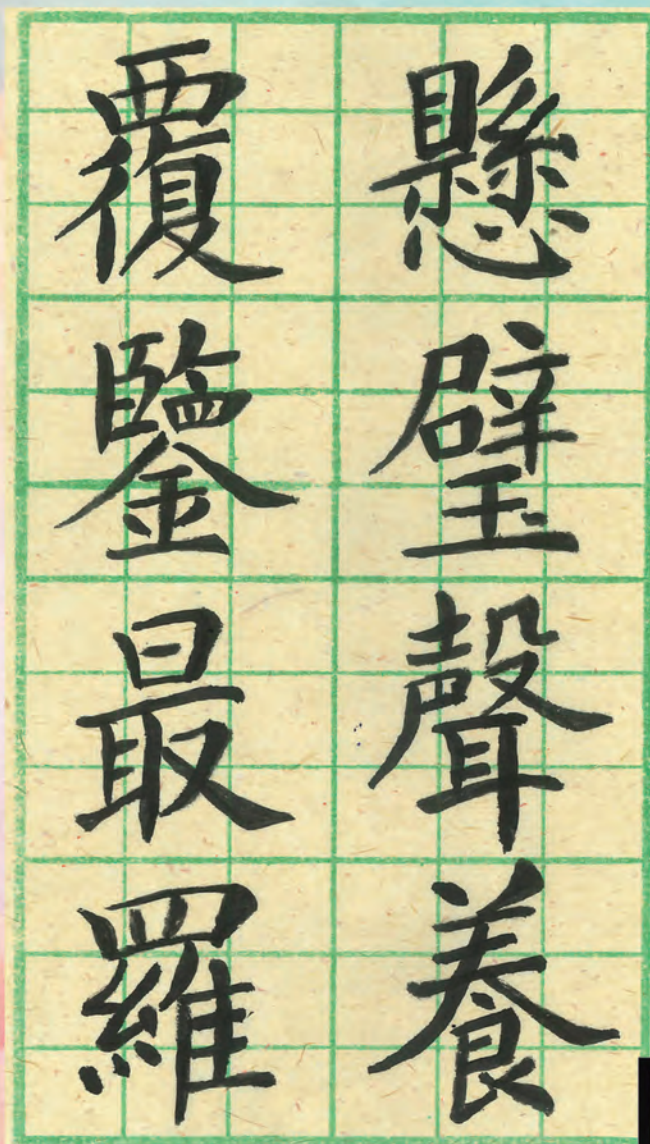 懸璧聲養
覆鑒最羅